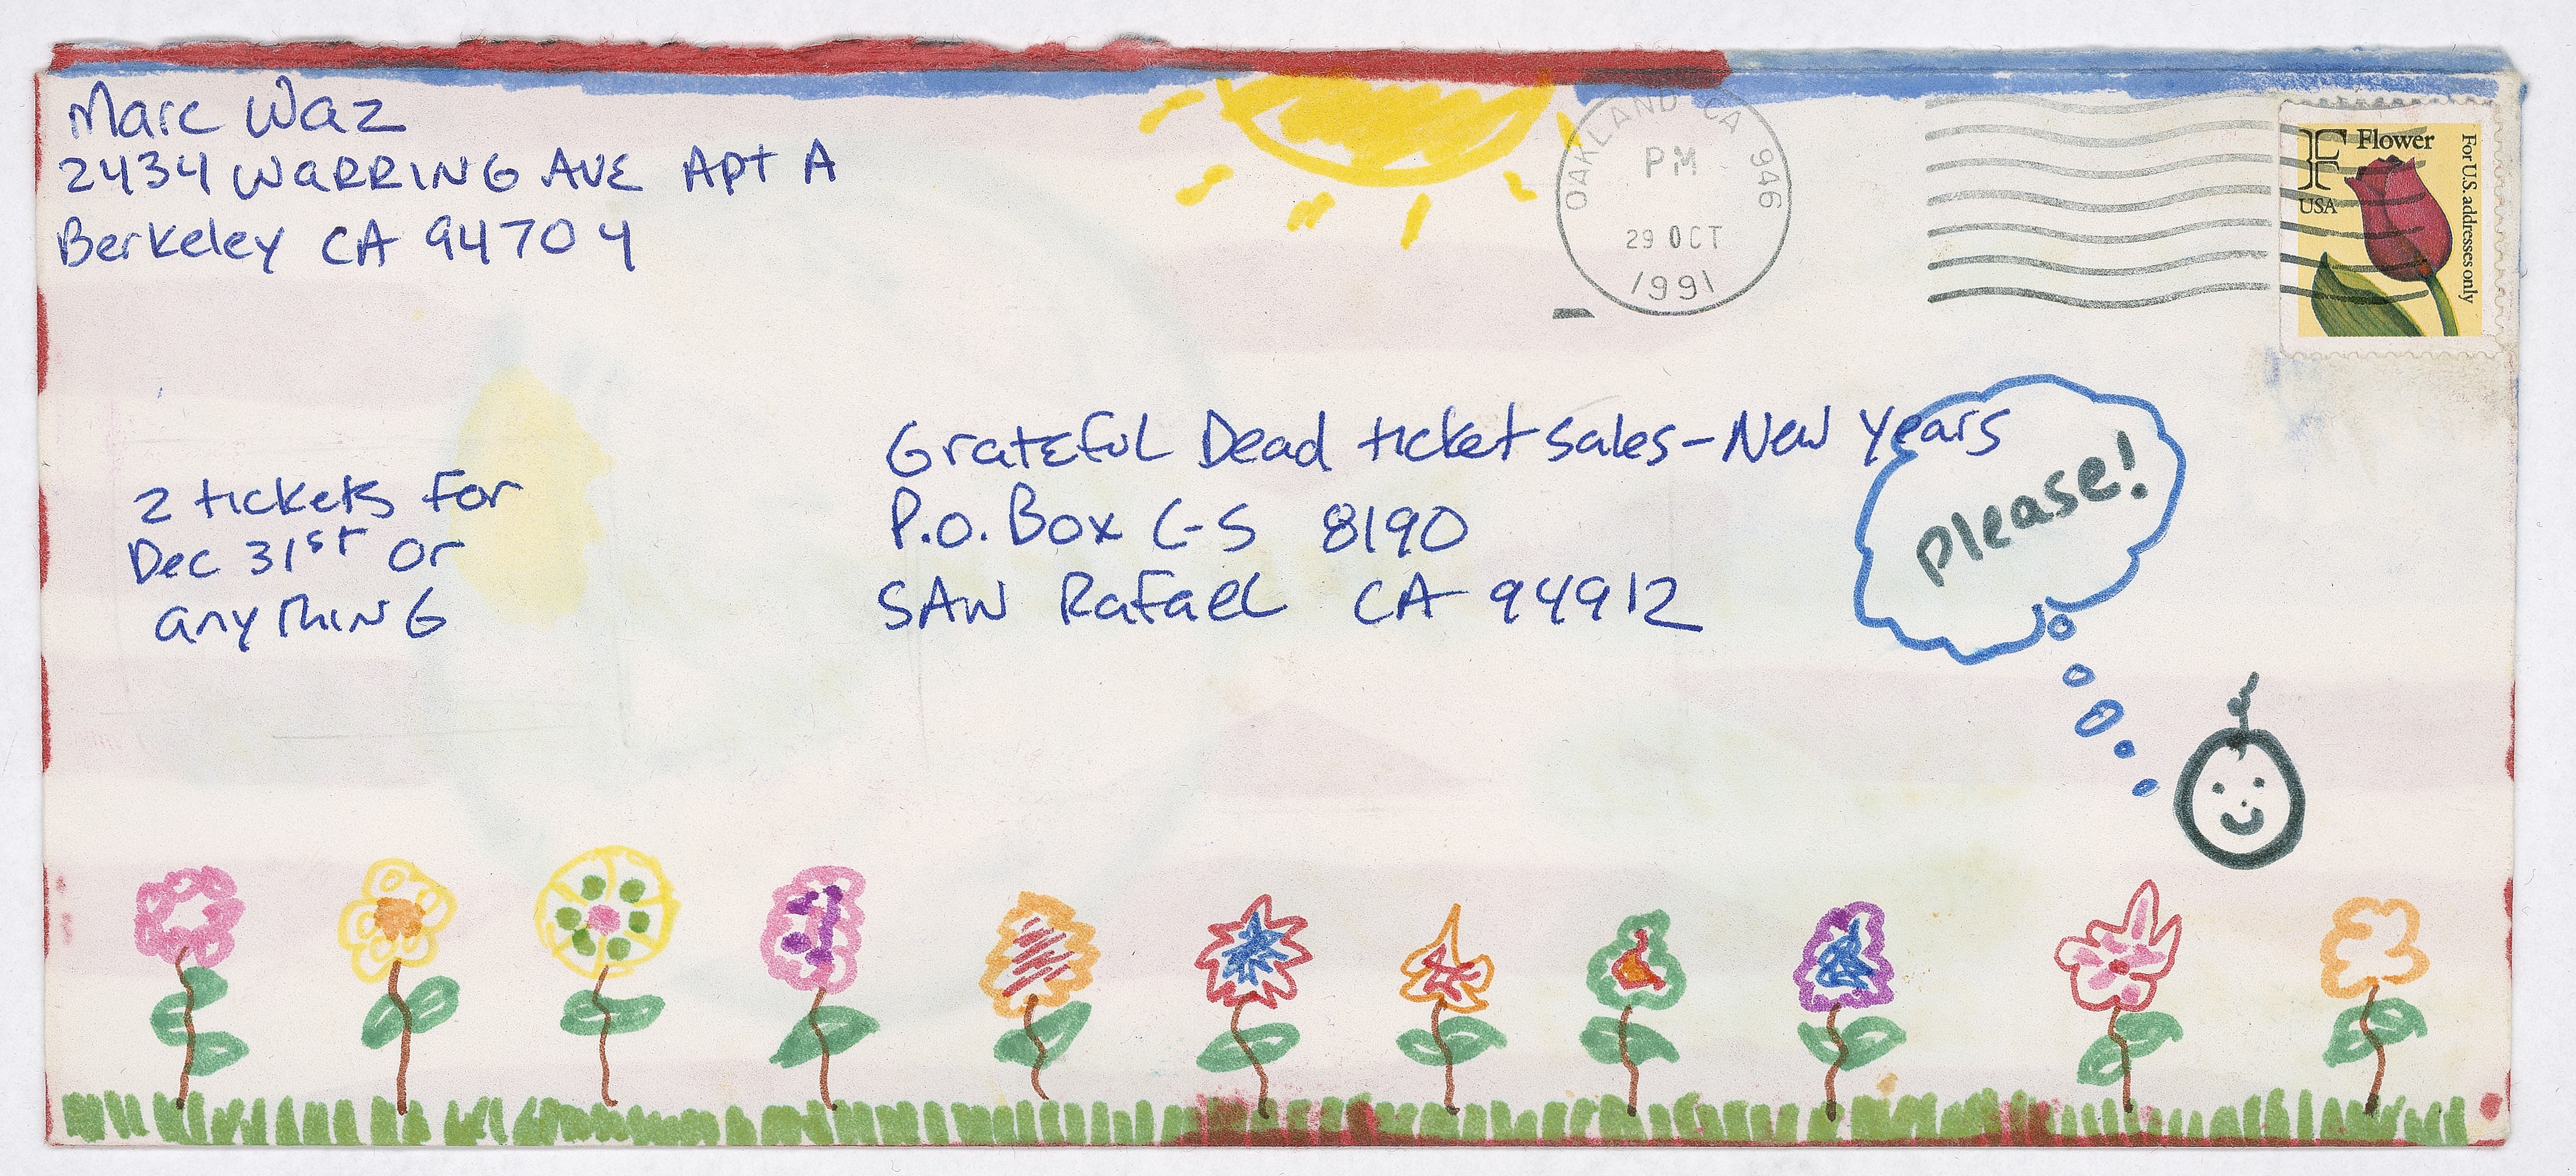 Marc Waz
2434 WARRING AVE APT A
Berkeley CA 94704
OAKLAND CA 946
PM
29 OCT
1991
F Flower
USA
For U.S. addresses only
2 tickets for
Dec 31st or
anything
Grateful Dead ticket sales - New Years
P.O. Box C-S 8190
SAN Rafael CA 94912
Please!